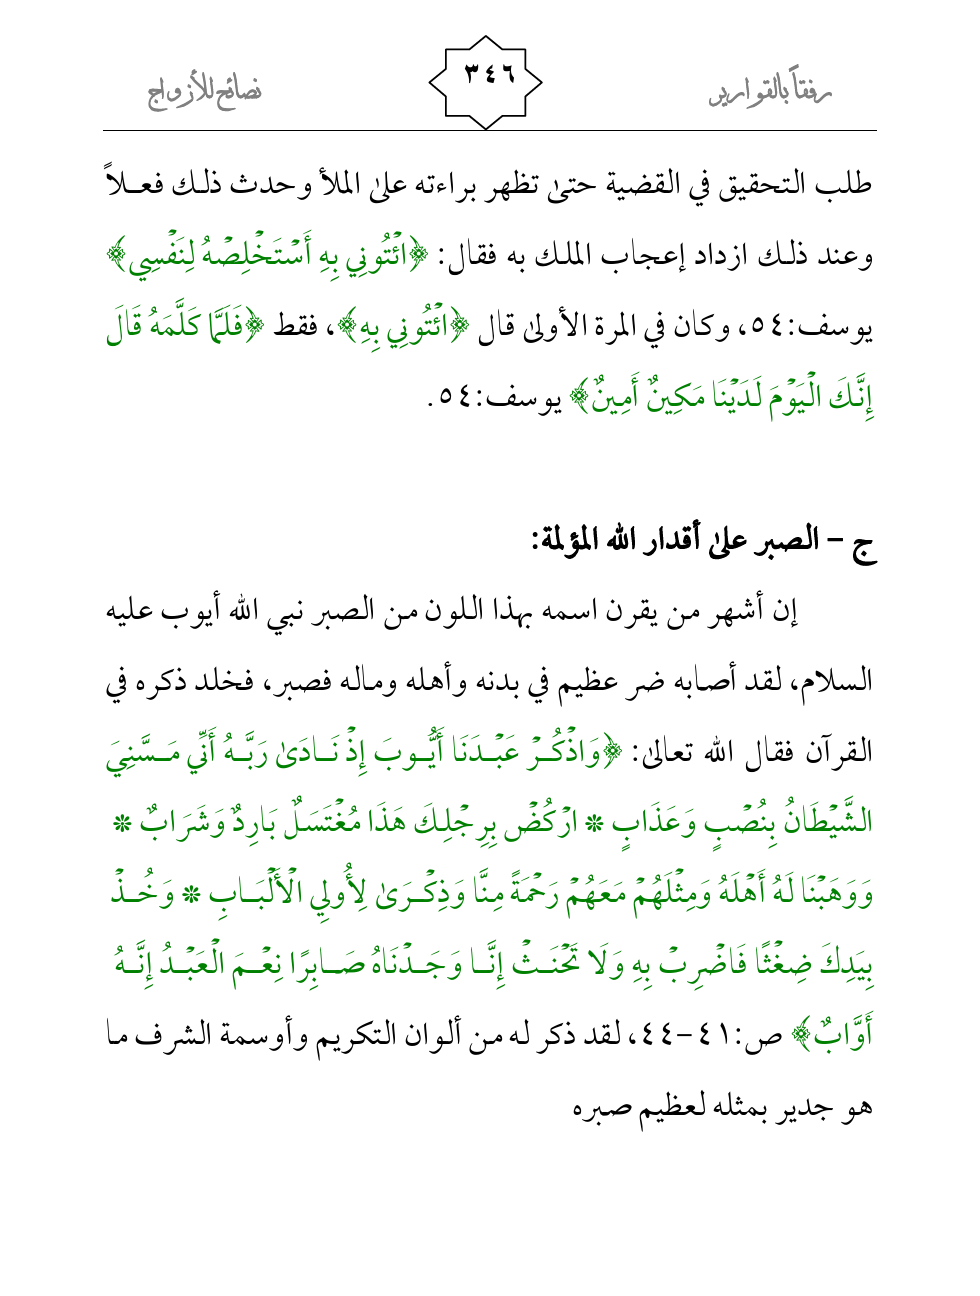 رفقاً بالقوارير
٣٤٦
نصائح للأزواج
طلب التحقيق في القضية حتىٰ تظهر براءته علىٰ الملأ وحدث ذلك فعلاً
وعند ذلك ازداد إعجاب الملك به فقال: ﴿ائْتُونِي بِهِ أَسْتَخْلِصْهُ لِنَفْسِي﴾
يوسف:٥٤، وكان في المرة الأولىٰ قال ﴿ائْتُونِي بِهِ﴾، فقط ﴿فَلَمَّا كَلَّمَهُ قَالَ
إِنَّكَ الْيَوْمَ لَدَيْنَا مَكِينٌ أَمِينٌ﴾ يوسف:٥٤.
ج – الصبر علىٰ أقدار الله المؤلمة:
إن أشهر من يقرن اسمه بهذا اللون من الصبر نبي الله أيوب عليه
السلام، لقد أصابه ضر عظيم في بدنه وأهله وماله فصبر، فخلد ذكره في
القرآن فقال الله تعالىٰ: ﴿وَاذْكُرْ عَبْدَنَا أَيُّوبَ إِذْ نَادَىٰ رَبَّهُ أَنِّي مَسَّنِيَ
الشَّيْطَانُ بِنُصْبٍ وَعَذَابٍ * ارْكُضْ بِرِجْلِكَ هَذَا مُغْتَسَلٌ بَارِدٌ وَشَرَابٌ *
وَوَهَبْنَا لَهُ أَهْلَهُ وَمِثْلَهُمْ مَعَهُمْ رَحْمَةً مِنَّا وَذِكْرَىٰ لِأُولِي الْأَلْبَابِ * وَخُذْ
بِيَدِكَ ضِغْثًا فَاضْرِبْ بِهِ وَلَا تَحْنَثْ إِنَّا وَجَدْنَاهُ صَابِرًا نِعْمَ الْعَبْدُ إِنَّهُ
أَوَّابٌ﴾ ص:٤١–٤٤، لقد ذكر له من ألوان التكريم وأوسمة الشرف ما
هو جدير بمثله لعظيم صبره